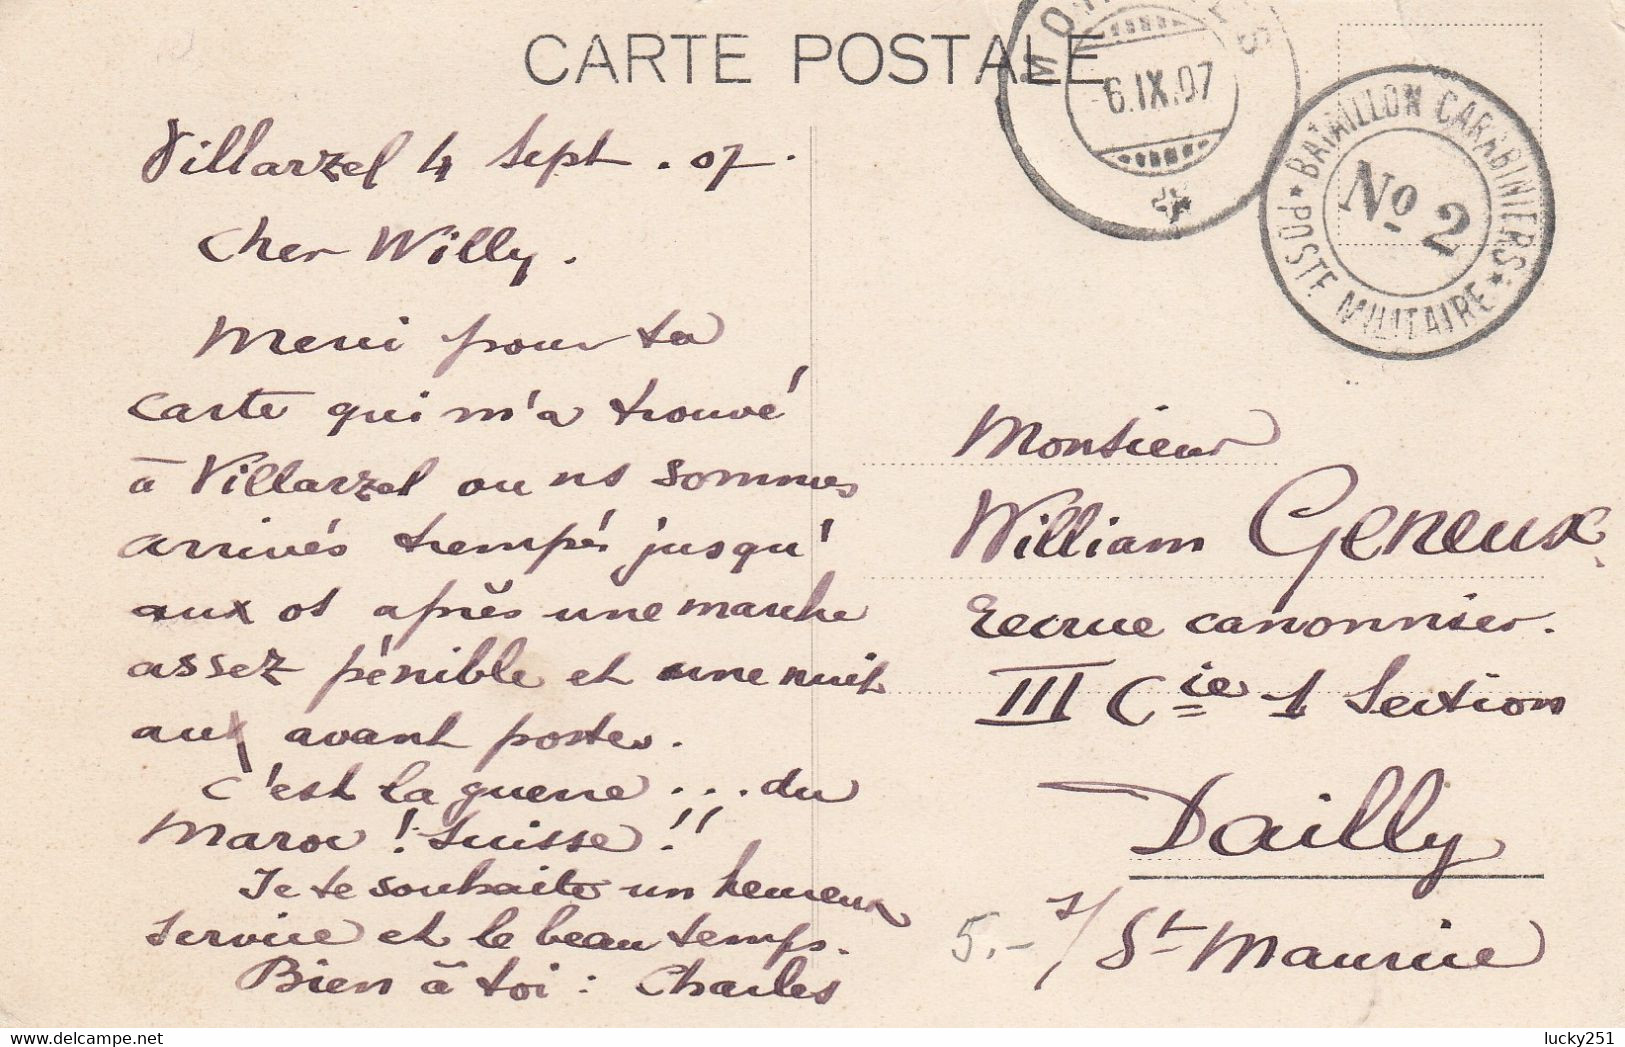 CARTE POSTALE
6.IX.07
BATAILLON CARABINIERS
No. 2
POSTE MILITAIRE
Villarzel 4 Sept. 07.
Cher Willy.
Merci pour ta
carte qui m'a trouvé
à Villarzel ou ns sommes
arrivés trempés jusqu'
aux os après une marche
assez pénible et une nuit
aux avant postes.
C'est la guerre ... du
Maroc ! Suisse !!
Je te souhaite un heureux
service et le beau temps.
Bien à toi : Charles
Monsieur
William Geneux
Recrue canonnier.
III Cie 1 Section
Dailly
s/ St Maurice
5.-
https://www.delcampe.net
lucky251